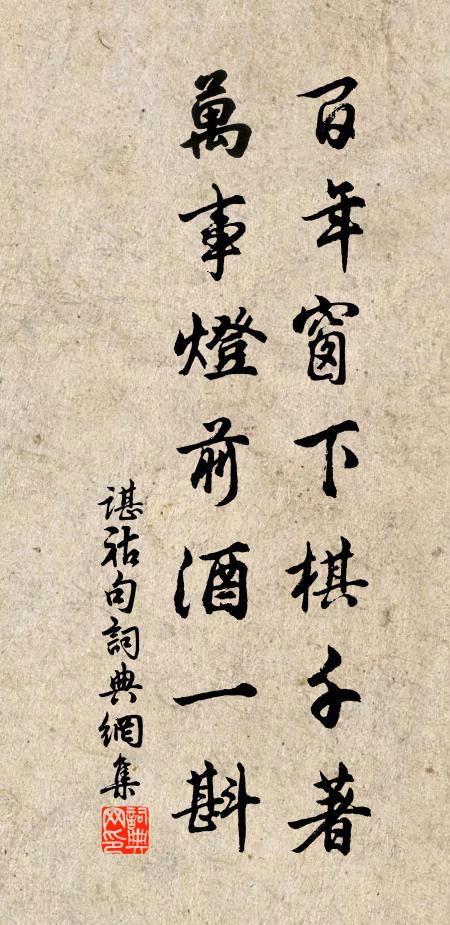 百年窗下棋千著
萬事燈前酒一斟
谌祜句詞典網集
詞典网印